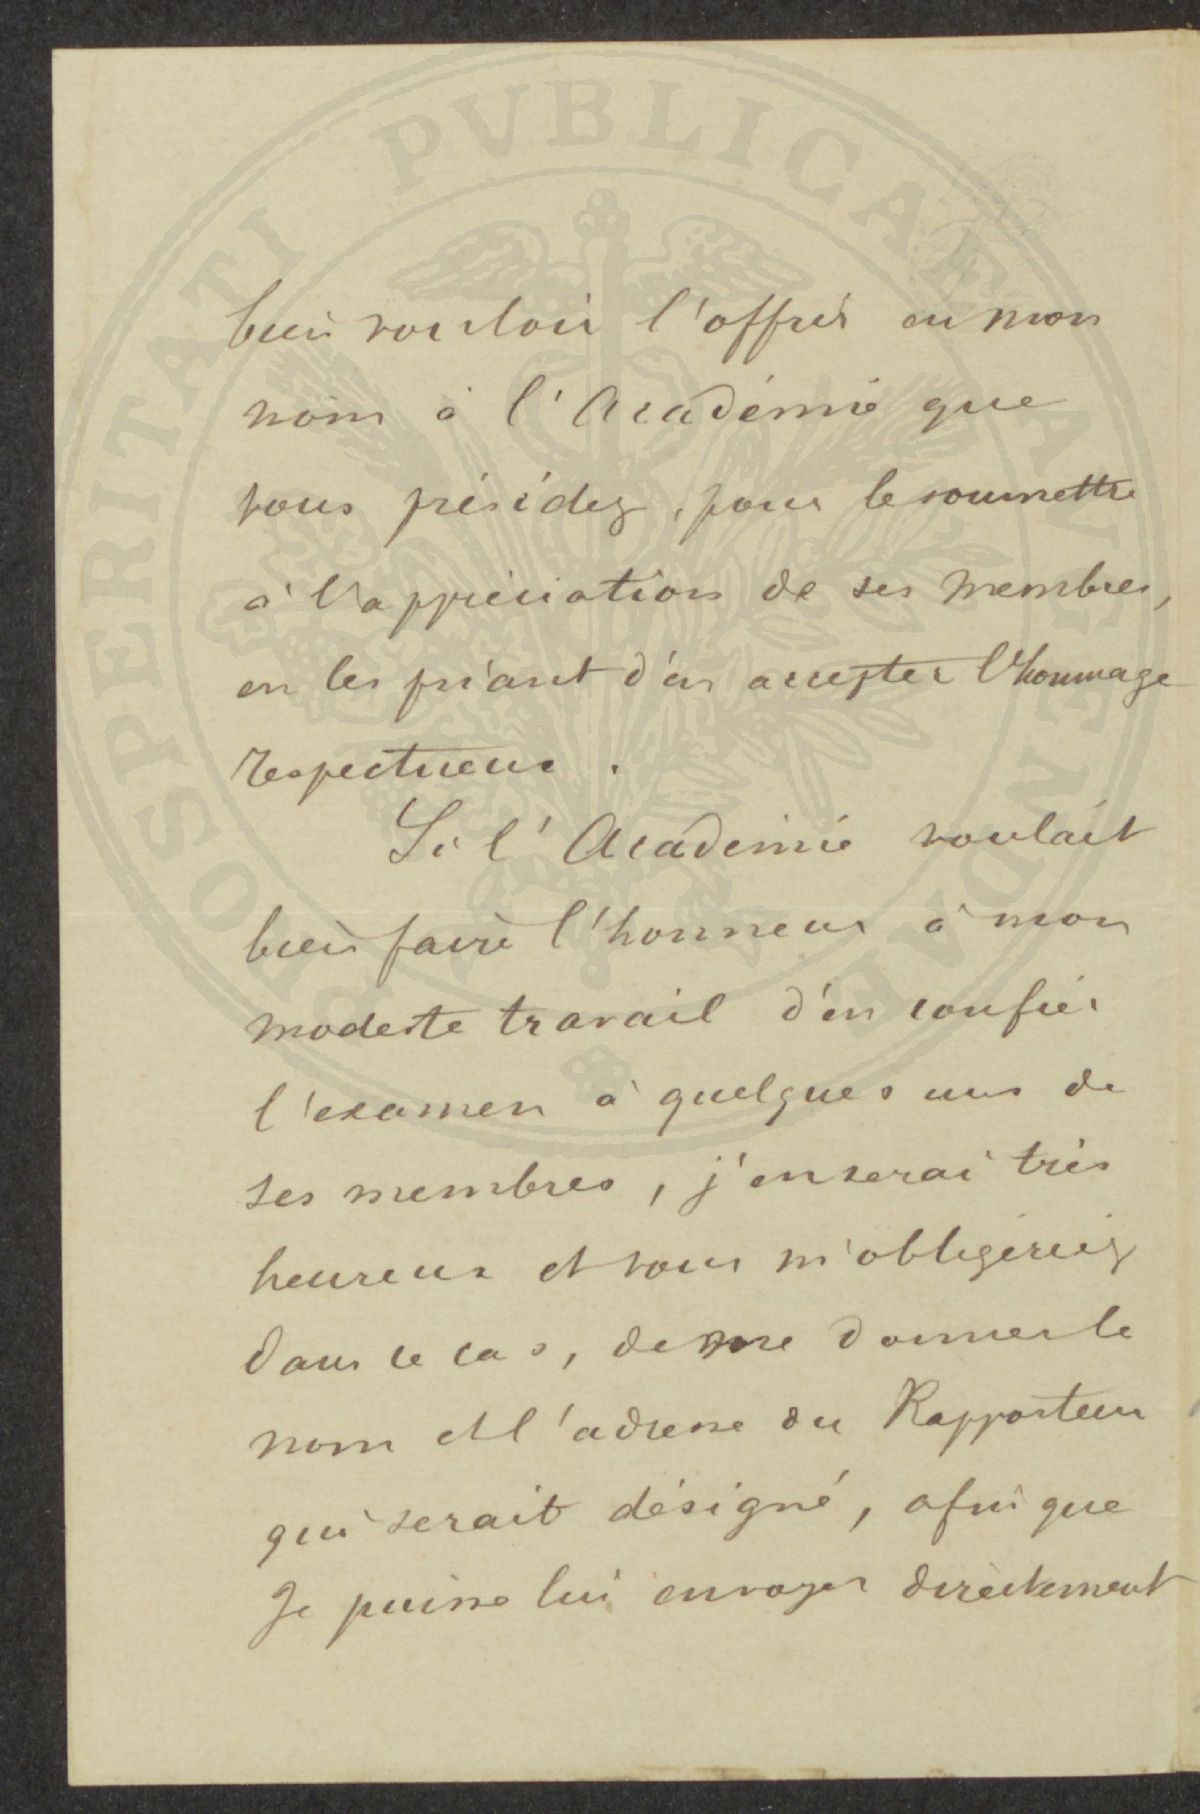 PROSPERITATI PVBLICAE AVGENDAE
bien vouloir l'offrir en mon
nom à l'Académie que
vous présidez, pour le soumettre
à l'appréciation de ses membres,
en les priant d'en accepter l'hommage
respectueux.
Si l'Académie voulait
bien faire l'honneur à mon
modeste travail d'en confier
l'examen à quelques uns de
ses membres, j'en serai très
heureux et vous m'obligeriez
dans ce cas, de me donner le
nom et l'adresse du Rapporteur
qui serait désigné, afin que
je puisse lui envoyer directement